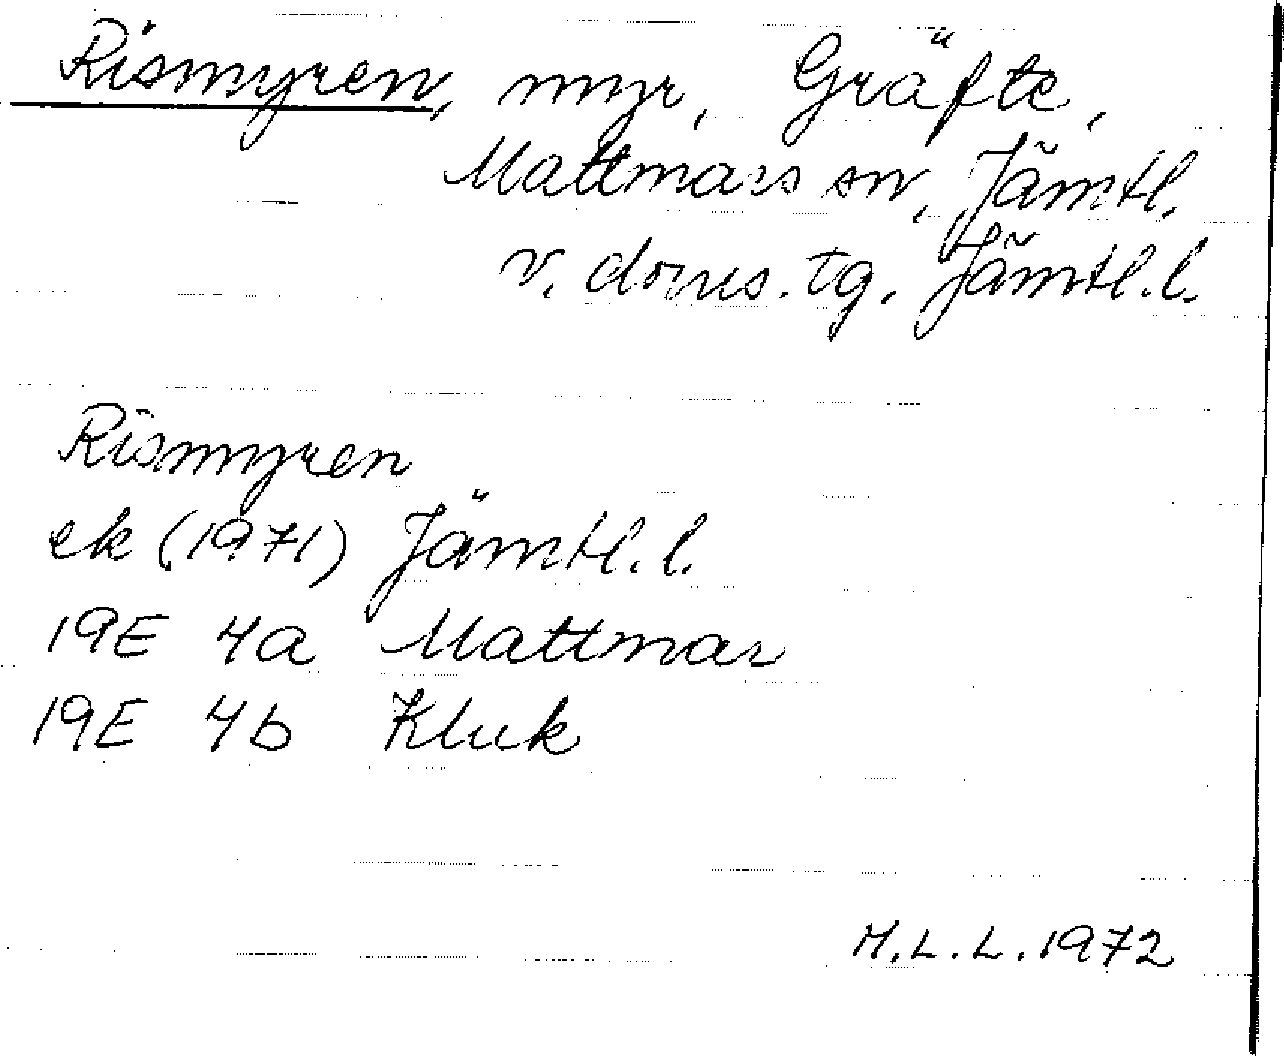 Rismyren, myr, Gräfte,
Mattmars sn, Jämtl.
v. doms. tg. Jämtl. l.
Rismyren
ek (1971) Jämtl. l.
19E 4a Mattmar
19E 4b Kluk
M.L.L. 1972